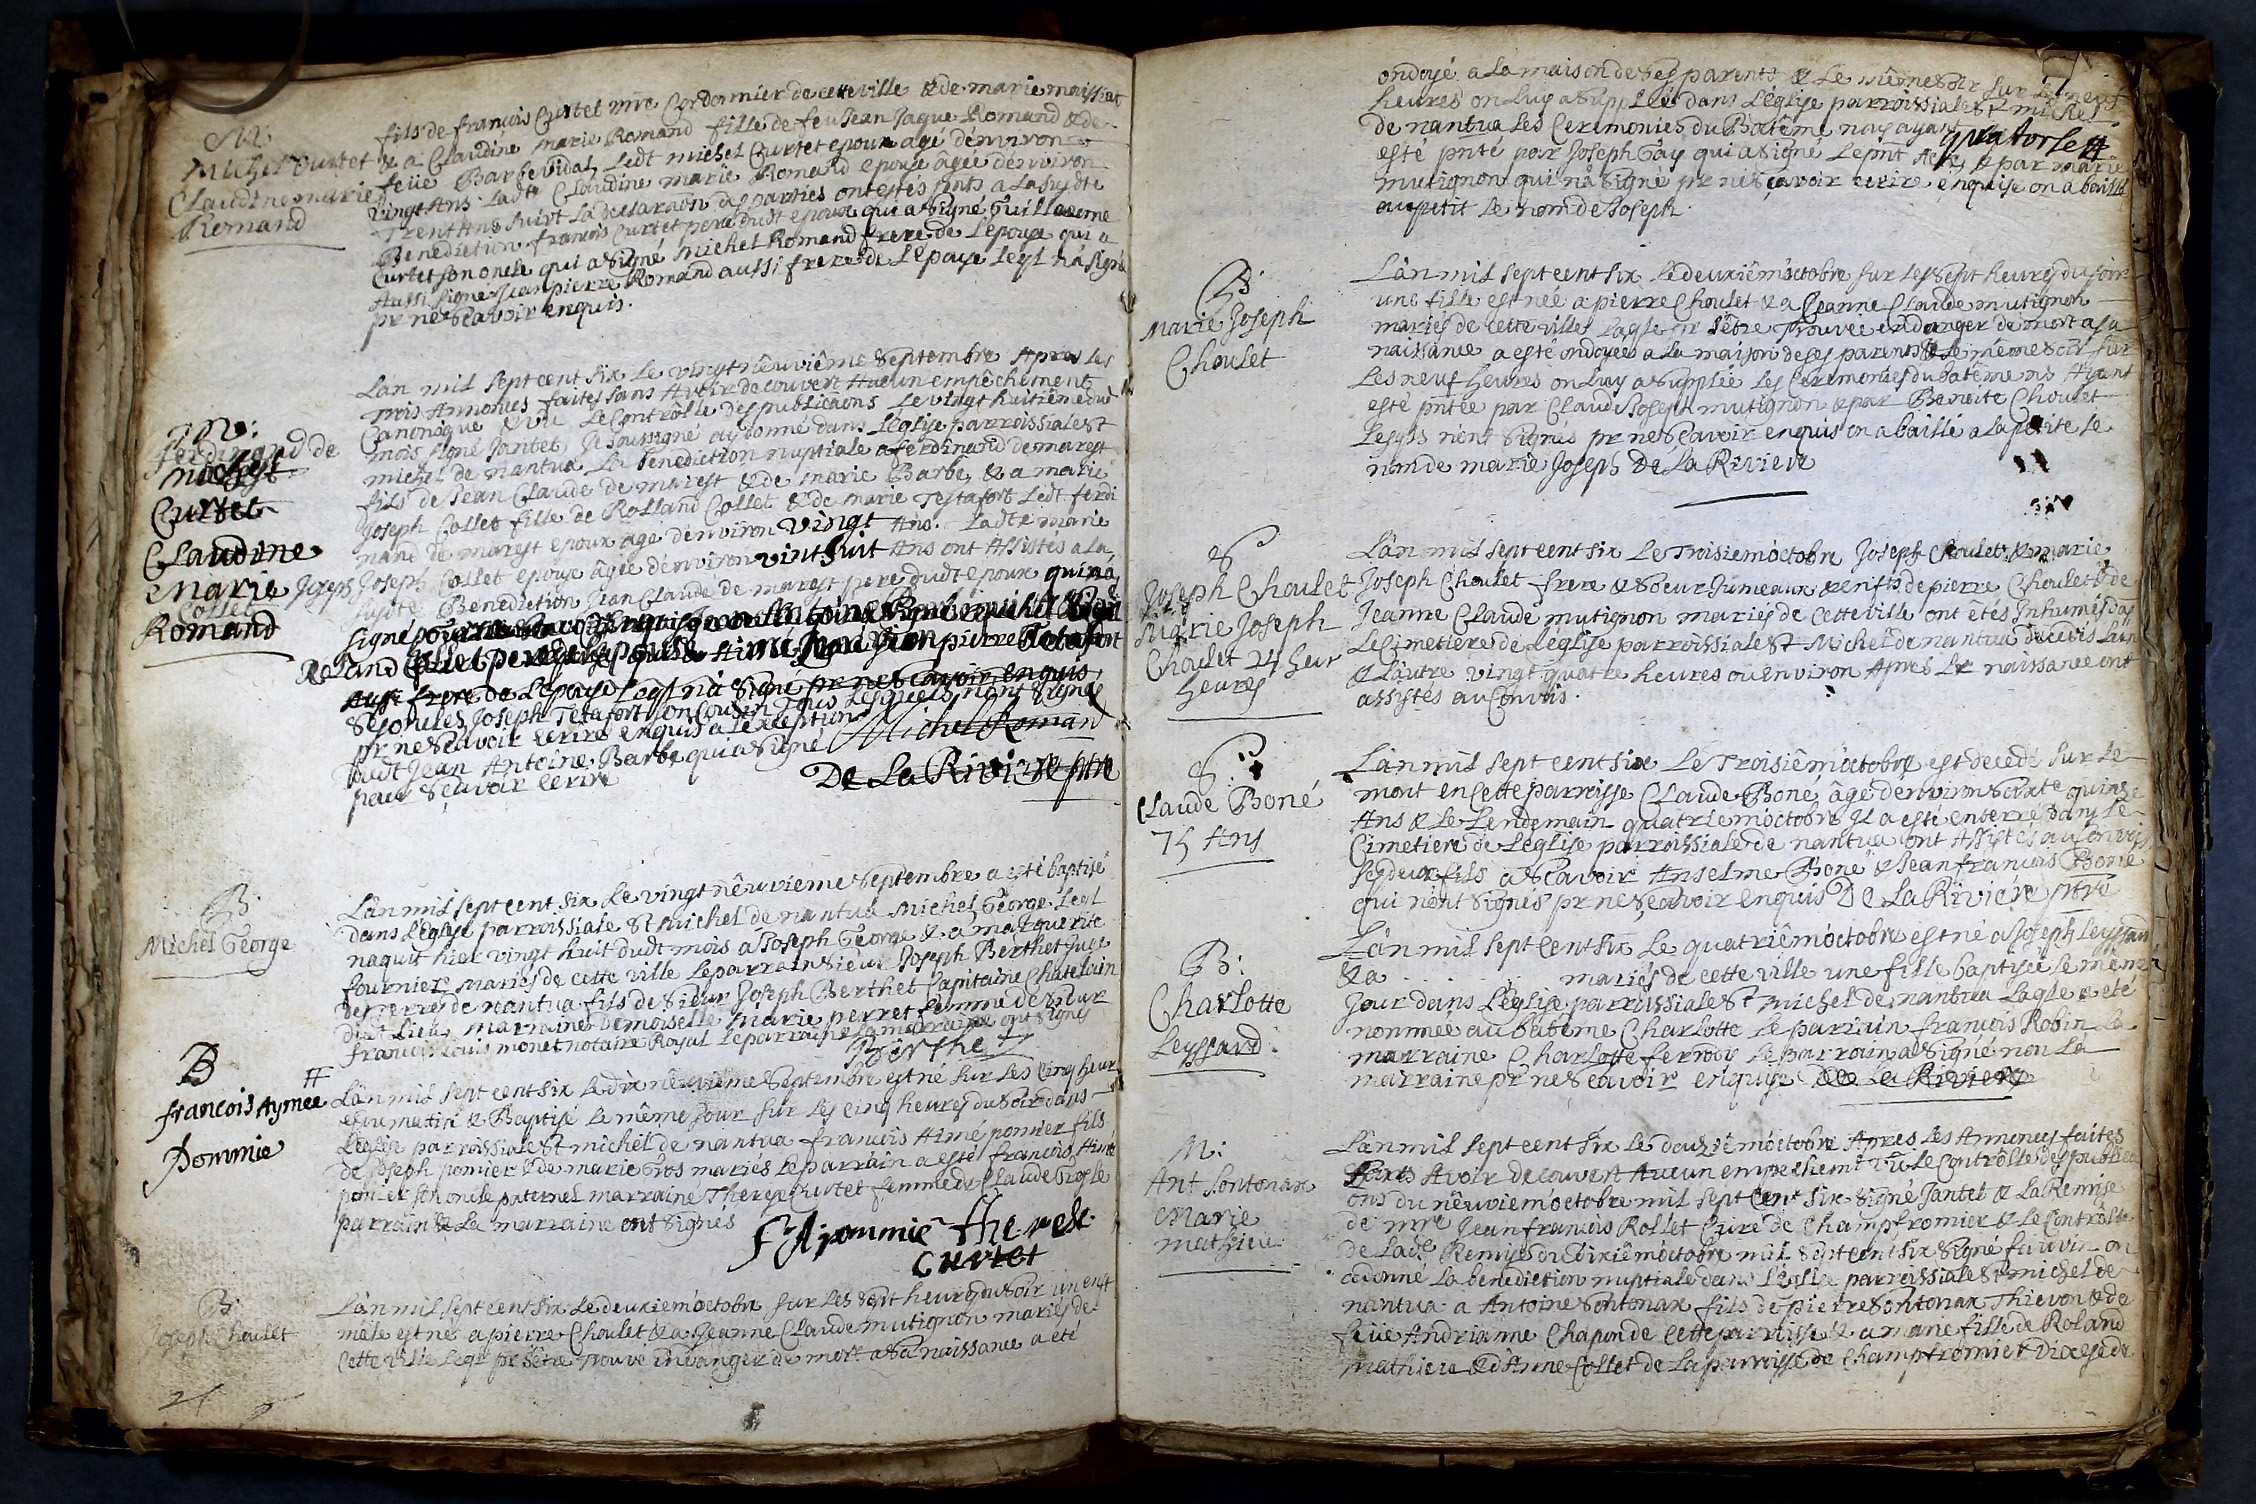 M:
Michel Curtet
Claudine marie
Romand
fils de françois Curtet mre Cordonnier de cette ville & de marie moissiat
& a Claudine marie Romand fille de feu Jean Jaque Romand & de
feüe Barbe vidal Ledt michel Curtet epoux agé dénviron
vingt Ans Ladte Claudine marie Romand epouse agée dénviron
Trent Ans suivt la declaraon des parties ont estés pnts a la susdte
Benediction françois Curtet pere dudt epoux qui a signé Guillaume
Curtet son oncle qui a signé michel Romand frere de Lépouse qui a
Aussi signé Jean pierre Romand aussi frere de Lépouse Leql ná signé
pr ne Scavoir enquis.
M:
ferdinand de
marest
Curtet
Claudine
Marie Joseph
Collet
Romand
Lán mil Sept cent Six Le vingt nêuviême Septembre Apres Les
trois Annonces faites sans Avoir decouvert Aucun empêchement
Canonique & vû Le Controlle des publicaons Le vingt huitiême du
mois signé Jantet Je soussigné ay donné dans L'eglise parroissiale St
michel de nantua La benediction nuptiale a ferdinand de marest
fils de Jean Claude de marest & de marie Barbe & a marie
Joseph Collet fille de Rolland Collet & de marie Testafort Ledt ferdi
nand de marest epoux agé dénviron vingt Ans. Ladte marie
Joseph Collet epouse âgée dénviron vint huit Ans ont Assistés a la
susdte Benediction Jean Claude de marest pere dudt epoux qui ná
signé
Roland Collet pere de Lépouse
Aussi frere de Lépouse Leql ná signé pr ne Scavoir enquis
Ses oncles Joseph Tetafort son Cousin Tous Lesquels nont signés
pr ne Scavoir écrire enquis a Léxception
dudt Jean Antoine Barbe qui a signé Michel Roman
pour Scavoir écrire
De La Riviere ptre
B:
Michel George
Lán mil sept cent six Le vingt nêuvieme Septembre a esté baptisé
dans L'eglise parroissiale St michel de nantua Michel George Leql
naquit hier vingt huit dudt mois a Joseph George & a marguerite
fournier mariés de cette ville Le parrain Sieur Joseph Berthet Juge
des terres de nantua fils de Sieur Joseph Berthet Capitaine Chatelain
dudt Lieu marraine Demoiselle Marie perret femme de Sieur
françois Louis monet notaire Royal Le parrain & La marraine ont signés
Berthet
B
francois Aymee
Pommie
Lán mil sept cent six Le dix nêuviême Septembre est né sur Les Cinq heur
es du matin & Baptisé Le même jour sur Les cinq heures du soir dans
L'eglise parroissiale St michel de nantua françois Aimé pomier fils
de Joseph pomier & de marie Gros mariés Le parrain a esté françois Aimé
pomier son oncle paternel marraine Therese Curtet femme de Claude Gros Le
parrain & La marraine ont signés
F A pommie therese
Curtet
B:
Joseph Choulet
Lán mil sept cent six Le deuxiem'octobre sur Les Sept heures du soir un enft
mâle est né a pierre Choulet & a Jeanne Claude mutignon mariés de
cette ville Leql pr sêtre trouvé en danger de mort a sa naissance a été
ondoyé a La maison de Ses parents & Le même soir sur Les neuf
heures on Luy a Supplée dans L'eglise parroissiale St michel
de nantua Les Ceremonies du Batême nay ayant
quatorse
esté pnté par Joseph Gay qui a signé Le pnt Acte & par marie
mutignon qui ná signé pr ne Sçavoir écrire enquise on a baillé
au petit Le nom de Joseph.
B:
Marie Joseph
Choulet
Lán mil sept cent six Le deuxiêm'octobre sur Les Sept heures du soir
une fille est née a pierre Choulet & a Jeanne Claude mutignon
mariés de cette ville Laqle pr sêtre trouvée en danger de mort a sa
naissance a esté ondoyée a La maison de ses parents & Le même soir sur
Les neuf heures on Luy a Supplée Les Ceremonies du batême ny Ayant
esté pntée par Claude Joseph mutignon & par Benoite Choulet
Lesqls nónt Signés pr ne Scavoir enquis on a baillé a La petite Le
nom de marie Joseph De La Riviere
S
Joseph Choulet
Marie Joseph
Choulet 24 heur
heures
Lán mil sept cent six Le Troisiem'octobre Joseph Choulet & marie
Joseph Choulet frere & Soeur Jumeaux & enfts de pierre Choulet & de
Jeanne Claude mutignon mariés de cette ville ont êtés Inhumés dās
Le Cimetiere de L'eglise parroissiale St Michel de nantua decedés Lún
& Láutre vingt quatre heures ou environ Apres Lr naissance ont
assistés au Convois.
S:
Claude Boné
75 Ans
Lán mil sept cent six Le Troisiêm'octobre est decedé sur Le
mont en cette parroisse Claude Boné âgé dénviron Soixte quinze
Ans & Le Lendemain quatriem'octobre Il a esté enterré dans Le
Cimetiere de L'eglise parroissiale de nantua ont Assistés au Convois
Ses deux fils a Scavoir Anselme Boné & Jean françois Boné
qui nónt signés pr ne Scavoir enquis De La Riviere ptre
B:
Charlotte
Leyssard.
Lán mil sept cent six Le quatriêm'octobre est né a Joseph Leyssard
& a mariés de cette ville une fille baptisée Le même
Jour dans L'eglise parroissiale St michel de nantua Laqle a eté
nommée au batême Charlotte Le parrain françois Robin La
marraine Charlotte ferrdoy Le parrain a Signé non La
marraine pr ne Scavoir enquise De La Riviere
M:
Ant Sontonax
Marie
mathieu
Lán mil sept cent six Le douziêm'octobre Apres Les Annonces faites
Sans Avoir decouvert Aucun empechemt vû Le Controlle des publica
ons du nêuviem'octobre mil Sept Cent six signé Jantet & La Remise
de mre Jean francois Rollet Curé de Champfromier & Le Controlle
de Ladte Remise du dixiêm'octobre mil Sept cent six signé fauvin on
a donné La benediction nuptiale dans L'eglise parroissiale St michel de
nantua a Antoine Sontonax fils de pierre Sontonax Thievon & de
feüe Andrianne Chapon de cette parroisse & a marie fille de Roland
mathieu & dAnne Collet de La parroisse de Champfromier Diocese de